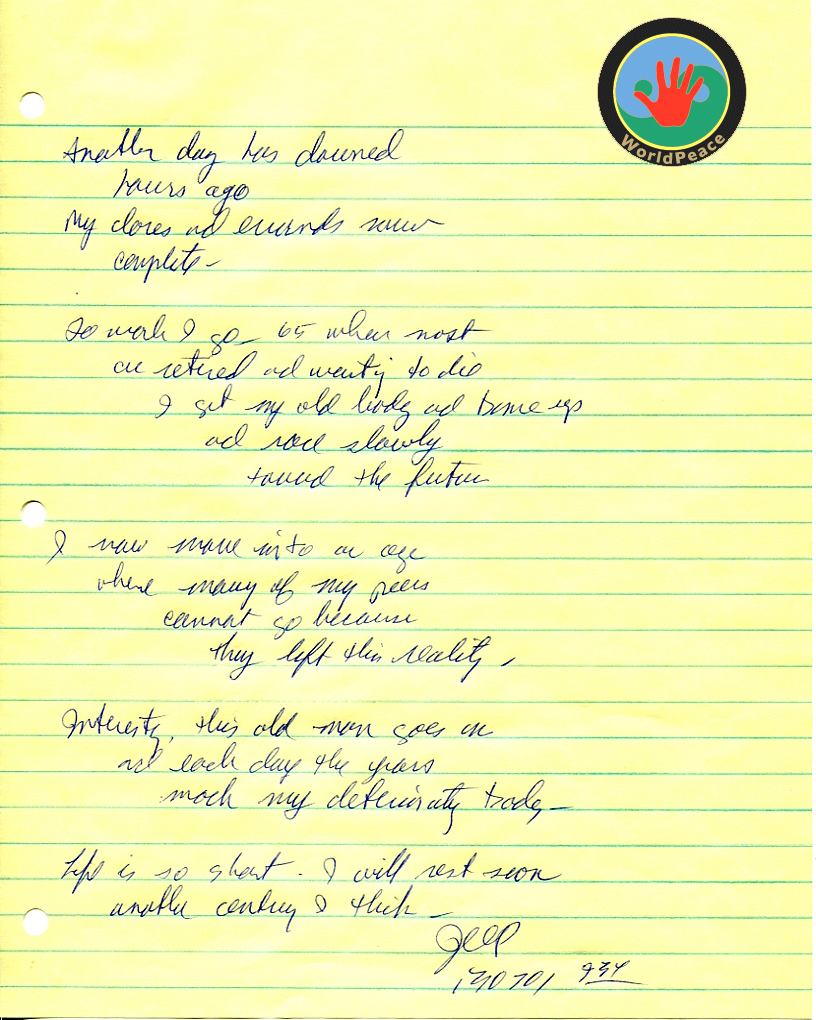 WorldPeace
Another day has dawned
hours ago
My chores and errands now
complete -
To work I go - 65 when most
are retired and waiting to die
I get my old body and bones up
and road slowly
toward the future
I now move into an age
where many of my peers
cannot go because
they left this reality,
Interesting, this old man goes on
and each day the years
mock my deteriorating body -
Life is so short. I will rest soon
another century I think -